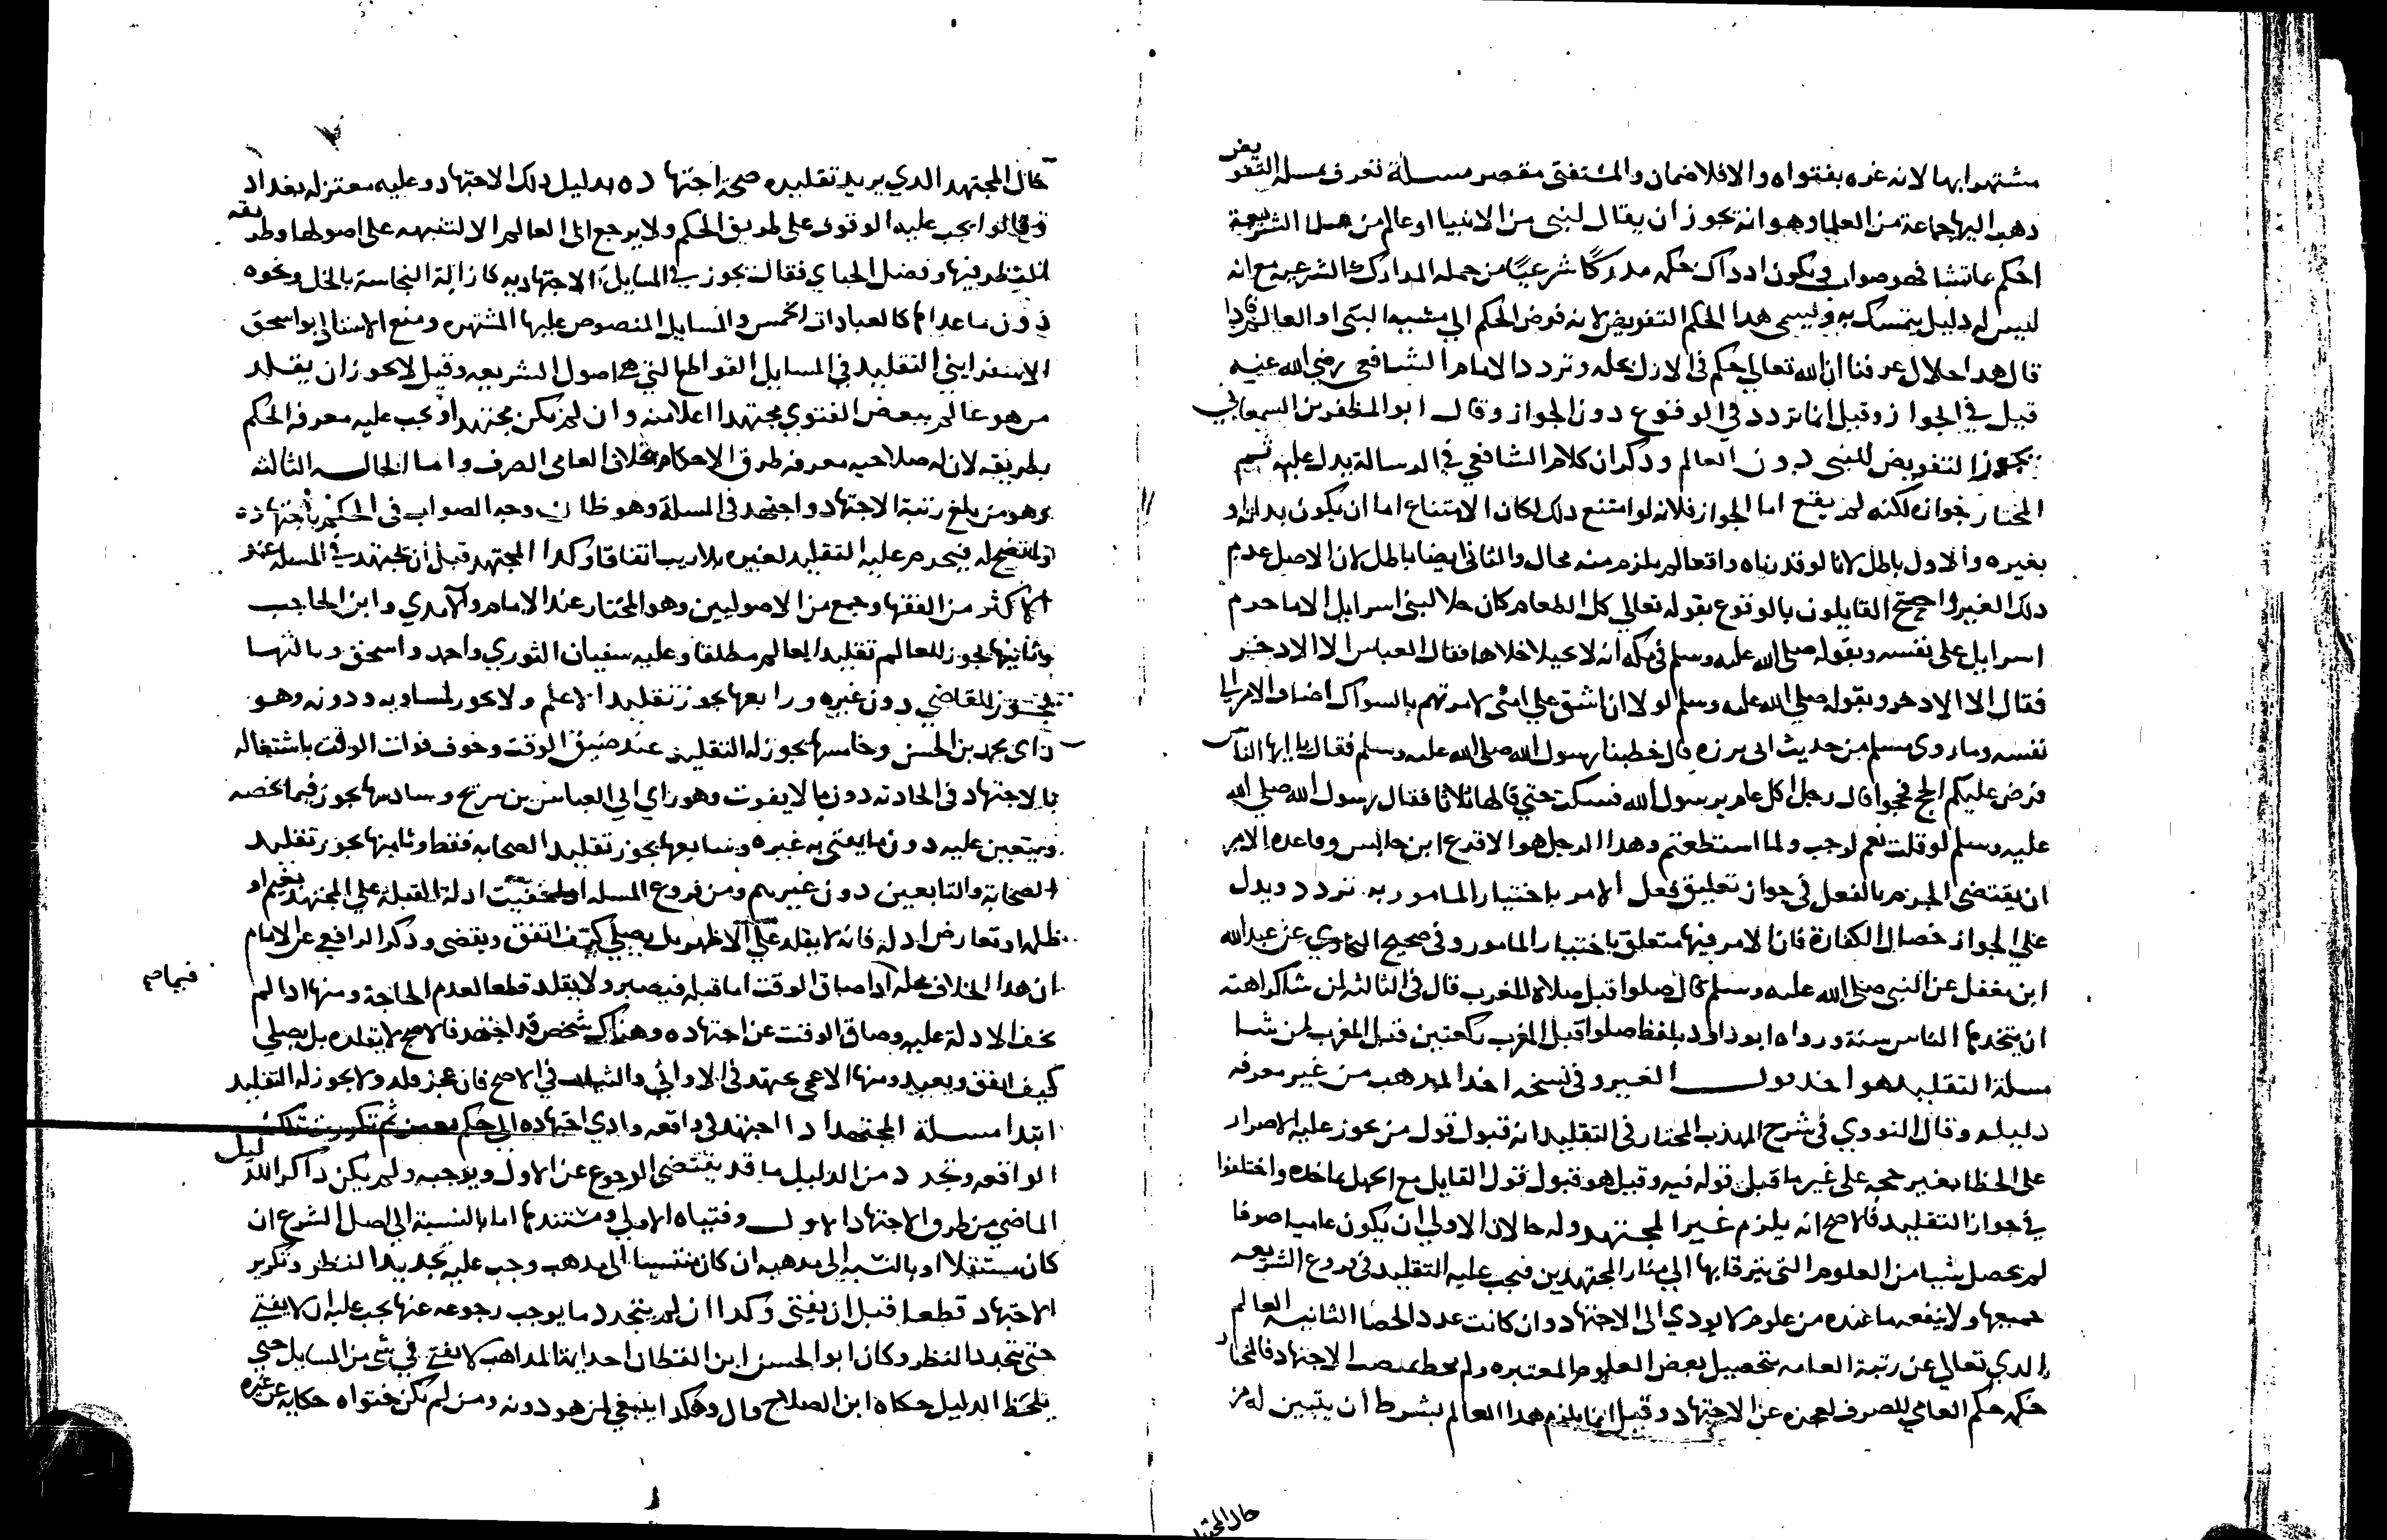 مشتهرا بها لانه غره بفتواه والا فلا ضمان والمستفتى مقصر مسلة تعرف بمسلة التفويض
ذهب اليها جماعة من العلما وهو انه يجوز ان يقال لنبى من الانبيا او عالم من هذه الشريعة
احكم بما تشا فهو صواب فيكون اذ ذاك حكمه مدركا شرعيا من جملة المدارك الشرعية مع انه
ليس له دليل يتمسك به وليسمى هذا الحكم التفويض لانه فوض الحكم الي مشية النبى او العالم فاذا
قال هذا حلال عرفنا ان الله تعالي حكم فى الازل بحله وتردد الامام الشافعي رضي الله عنه
قيل في الجواز وقيل انما تردد في الوقوع دون الجواز وقال ابو المظفر بن السمعاني
يجوز التفويض للنبى دون العالم وذكر ان كلام الشافعي في الرسالة يدل عليه ثم
المختار جوازه لكنه لم يقع اما الجواز فلانه لو امتنع ذلك لكان الامتناع اما ان يكون بذاته او
بغيره والاول باطل لانا لو قدرناه واقعا لم يلزم منه محال والثانى ايضا باطل لان الاصل عدم
ذلك الغير واحتج القايلون بالوقوع بقوله تعالي كل الطعام كان حلا لبنى اسرايل الا ما حرم
اسرايل على نفسه وبقوله صلي الله عليه وسلم فى مكه انه لا يختلا خلاها فقال العباس الا الاذخر
فقال الا الاذخر وبقوله صلي الله عليه وسلم لولا ان اشق علي امتى لامرتهم بالسواك اضاف الامر الي
نفسه وما روى مسلم من حديث ابى هريرة قال خطبنا رسول الله صلي الله عليه وسلم فقال يا ايها الناس
فرض عليكم الحج فحجوا قال رجل اكل عام يرسول الله فسكت حتي قالها ثلاثا فقال رسول الله صلي الله
عليه وسلم لو قلت نعم لوجب ولما استطعتم وهذا الرجل هو الاقرع ابن حابس وقاعدة الامر
ان يقتضى الجزم بالفعل في جواز تعليق فعل الامر باختيار المامور به تردد ويدل
علي الجواز خصال الكفارة فان الامر فيها متعلق باختيار المامور وفى صحيح البخاري عن عبد الله
ابن مغفل عن النبى صلي الله عليه وسلم قال صلوا قبل صلاة المغرب قال في الثالثه لمن شا كراهته
ان يتخذها الناس سنة ورواه ابو داود بلفظ صلوا قبل المغرب ركعتين قبل المغرب لمن شا
مسلة التقليد هو اخذ قول الغير وفى نسخه اخذ المذهب من غير معرفة
دليله وقال النووي في شرح المهذب المختار فى التقليد انه قبول قول من يجوز عليه الاصرار
على الخطا بغير حجه على غير ما قبل قوله فيه وقيل هو قبول قول القايل مع الجهل بماخذه واختلفوا
في جواز التقليد فالاصح انه يلزم غير المجتهد وله حالان الاولي ان يكون عاميا صرفا
لم يحصل شيا من العلوم التى يترقا بها الي منار المجتهدين فيجب عليه التقليد فى فروع الشريعه
جميعها ولا ينفعه ما عنده من علوم لا يودي الى الاجتهاد وان كانت عدد الحصا الثانيه العالم
الذي تعالي عن رتبة العامه بتحصيل بعض العلوم المعتبره ولم يحط بمنصب الاجتهاد فالمختار
حكمه حكم العامي الصرف لعجزه عن الاجتهاد وقيل انما يلزم هذا العالم بشرط ان يتبين له من
حال المجتهد
حال المجتهد الذي يريد تقليده صحة اجتهاده بدليل ذلك الاجتهاد وعليه معتزله بغداد
وقالوا يجب عليه الوقوف على طريق الحكم ولا يرجع الى العالم الا لتنبيهه على اصولها وطريقه
النظر فيها وفصل الجباي فقال يجوز في المسايل الاجتهاديه كازالة النجاسة بالخل ونحوه
دون ما عداها كالعبادات الخمس والمسايل المنصوص عليها المشتهره ومنع الاستاد ابو اسحق
الاسفرايني التقليد في المسايل القواطع التي هي اصول الشريعه وقيل لا يجوز ان يقلد
من هو عالم ببعض الفتوي مجتهدا اعلا منه وان لم يكن مجتهدا ويجب عليه معرفه الحكم
بطريقه لان له صلاحيه معرفه طرق الاحكام بخلاف العامي الصرف واما الحاله الثالثه
وهو من بلغ رتبة الاجتهاد واجتهد فى المسلة وهو ظان وجه الصواب فى الحكم باجتهاده
واتضح له فيحرم عليه التقليد لغيره بلا ريب اتفاقا وكذا المجتهد قبل ان يجتهد في المسلة عند
الاكثر من الفقها وجمع من الاصوليين وهو المختار عند الامام والآمدي وابن الحاجب
وثانيها يجوز للعالم تقليد العالم مطلقا وعليه سفيان الثوري واحمد واسحق وثالثها
يجوز للقاضي دون غيره ورابعها يجوز تقليد الاعلم ولا يجوز لمساويه ودونه وهو
راي محمد بن الحسن وخامسها يجوز له التقليد عند ضيق الوقت وخوف فوات الوقت باشتغاله
بالاجتهاد فى الحادثه دون ما لا يفوت وهو راي ابي العباس بن سريج وسادسها يجوز فيما يخصه
ويتعين عليه دون ما يفتى به غيره وسابعها يجوز تقليد الصحابه فقط وثامنها يجوز تقليد
الصحابة والتابعين دون غيرهم ومن فروع المسله اذا خفيت ادلة القبلة علي المجتهد بغيم او
ظلمة او تعارض ادلة فانه لا يقلد علي الاظهر بل يصلي كيف اتفق ويقضي وذكر الرافعي عن الامام
ان هذا الخلاف محله اذا ضاق الوقت اما قبله فيصبر ولا يقلد قطعا لعدم الحاجة ومنها اذا لم
فيما صح
تخف الادلة عليه وضاق الوقت عن اجتهاده وهناك شخص قد اجتهد فالاصح لا يقلده بل يصلي
كيف اتفق ويعيد ومنها الاعمى يجتهد فى الاواني والثياب في الاصح فان عجز قلد ولا يجوز له التقليد
ابتدا مسلة المجتهد اذا اجتهد في واقعه وادي اجتهاده الي حكم معين ثم تكررت تلك
الواقعه وتجدد من الدليل ما قد يقتضي الرجوع عن الاول ويوجبه ولم يكن ذاكرا للدليل
الماضي من طرق الاجتهاد الاول وفتياه الاولي ومستندها اما بالنسبة الي اصل الشرع ان
كان مستقلا او بالنسبة الى مذهبه ان كان منتسبا الى مذهب وجب عليه تجديد النظر وتكرير
الاجتهاد قطعا قبل ان يفتي وكذا ان لم يتجدد ما يوجب رجوعه عنها يجب عليه ان لا يفتي
حتى يتجدد النظر وكان ابو الحسن ابن القطان احد ايمة المذاهب لا يفتي في شي من المسايل حتي
يلحظ الدليل حكاه ابن الصلاح وقال وهكذا ينبغي لمن هو دونه ومن لم تكن فتواه حكاية عن غيره